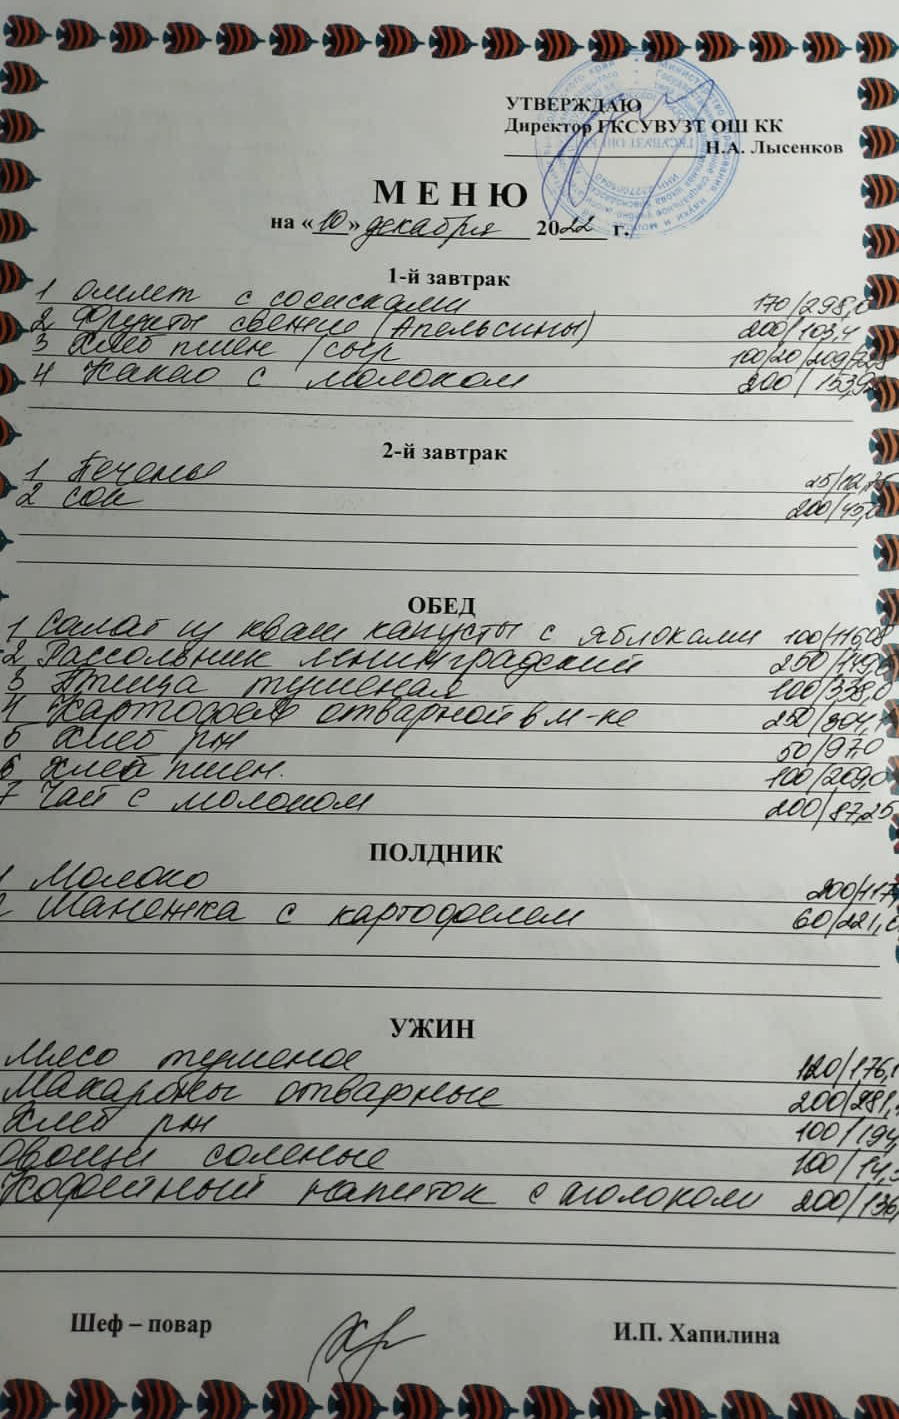 УТВЕРЖДАЮ
Директор ГКСУВУЗТ ОШ КК
Н.А. Лысенков
МЕНЮ
на «10» декабря 2022 г.
1-й завтрак
1 Омлет с сосисками 170/298,0
2 Фрукты свежие (Апельсины) 200/103,4
3 Хлеб пшен/сыр 100/20/209/72,8
4 Какао с молоком 200/153,92
2-й завтрак
1 Печенье 25/112,75
2 сок 200/45,0
ОБЕД
1 Салат из кваш капусты с яблоками 100/116,08
2 Рассольник ленинградский 250/149,
3 Птица тушеная 100/338,0
4 Картофель отварной в м-ке 250/304,
5 Хлеб рж 50/97,0
6 Хлеб пшен. 100/209,0
7 Чай с молоком 200/87,25
ПОЛДНИК
1 Молоко 200/117,
2 Манежка с картофелем 60/221,0
УЖИН
Мясо тушеное 120/176,
Макароны отварные 200/281,
Хлеб рж 100/194,
Овощи соленые 100/14,
Кофейный напиток с молоком 200/136,
Шеф – повар И.П. Хапилина